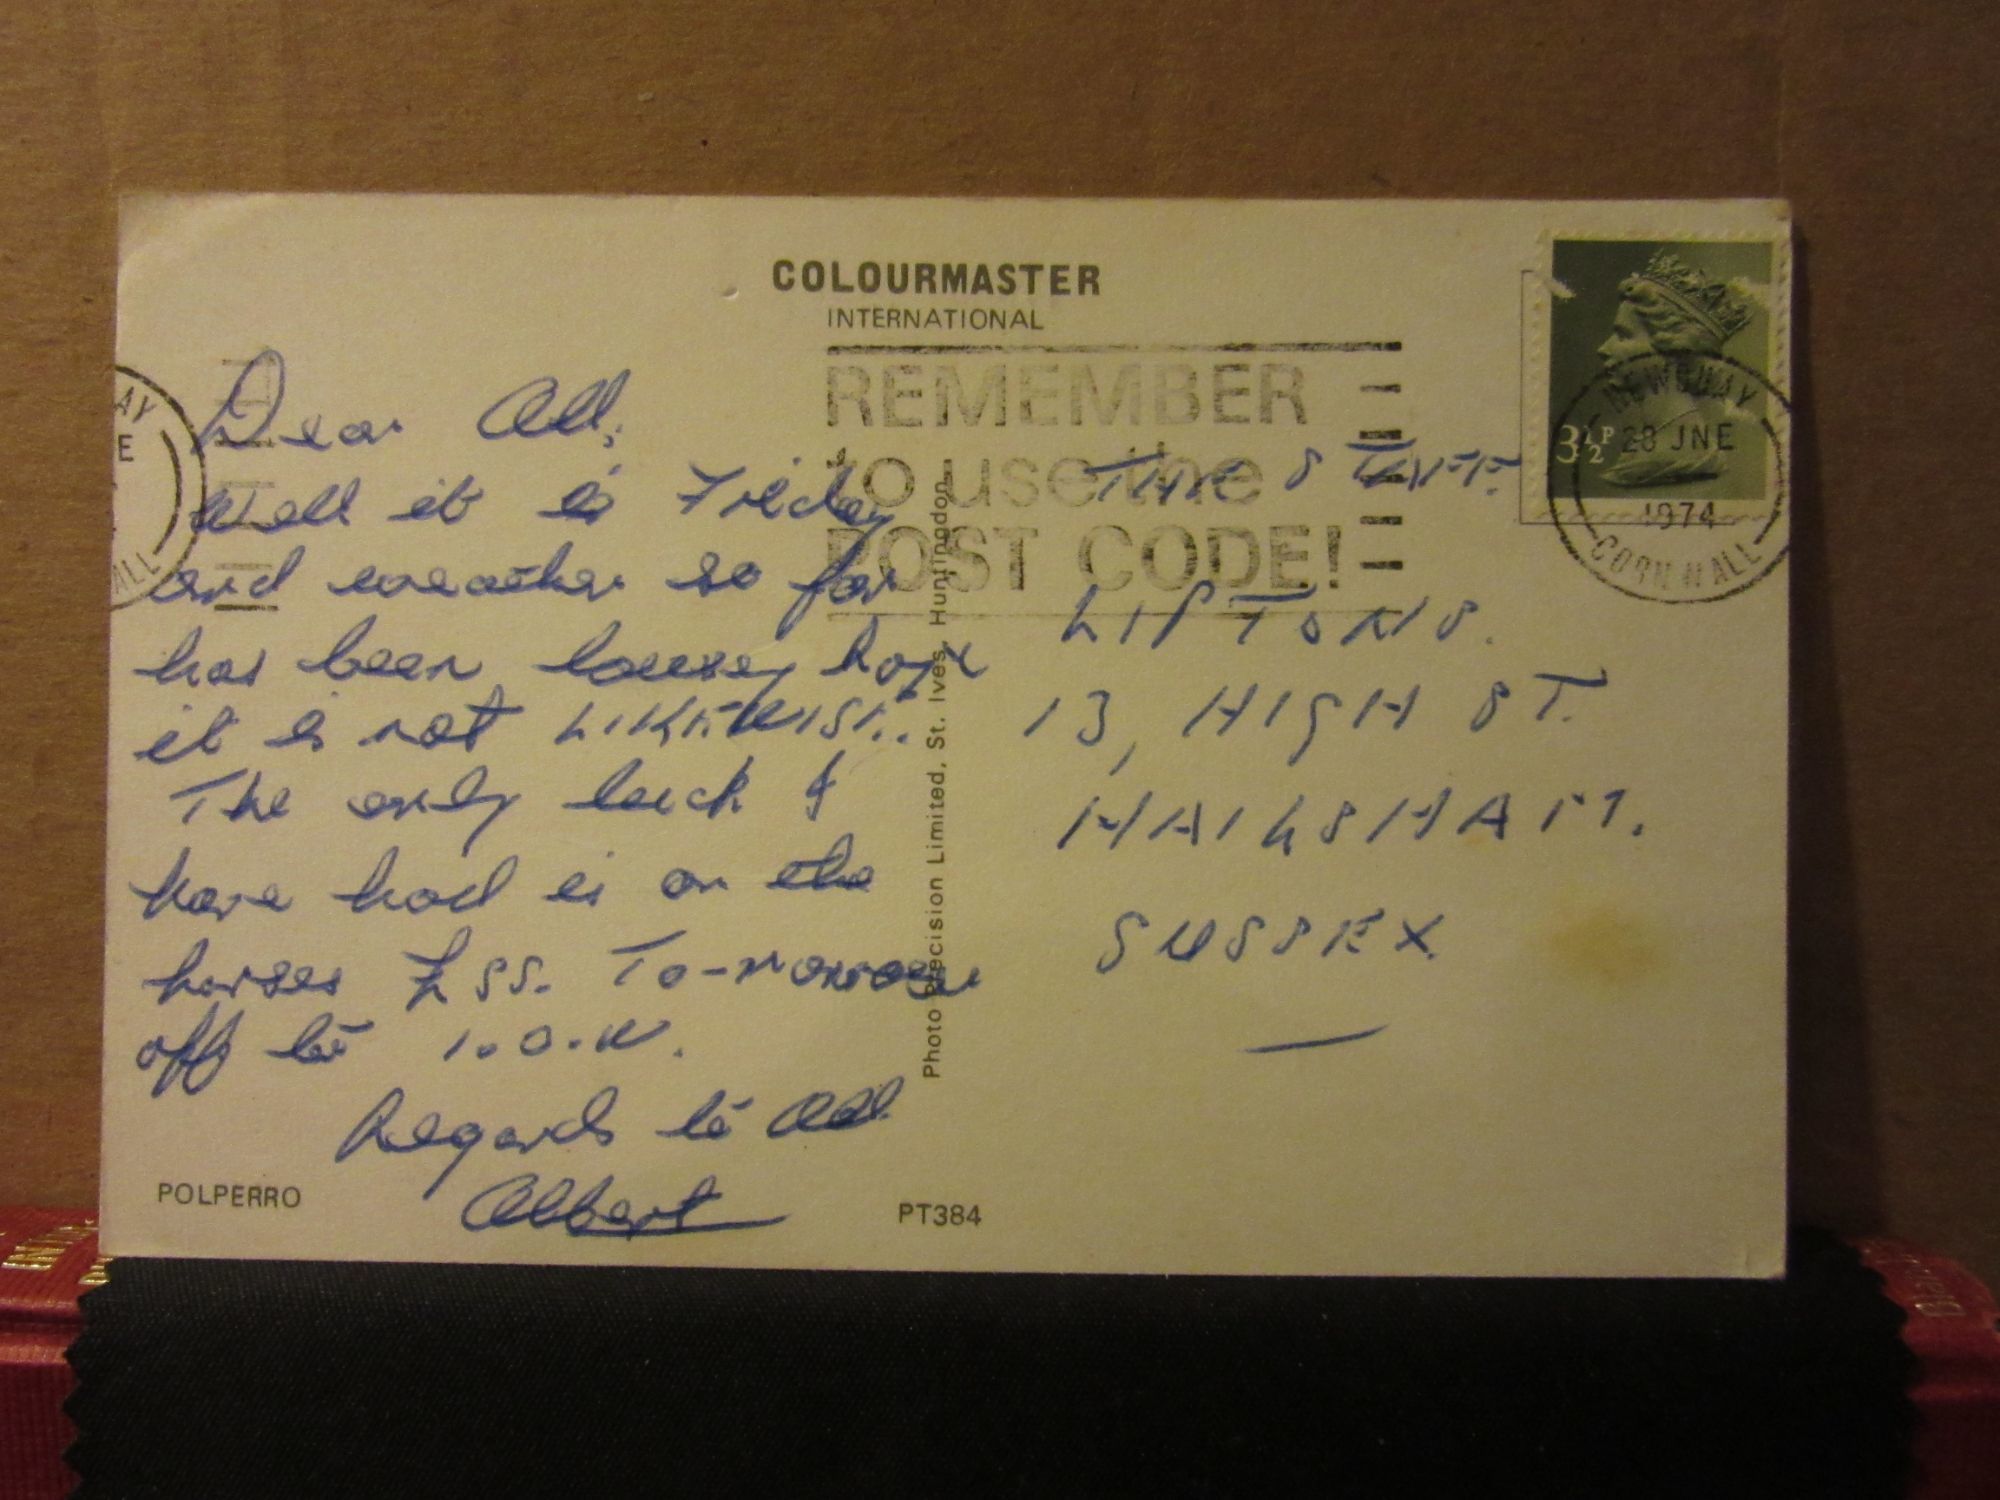 COLOURMASTER
INTERNATIONAL
REMEMBER
to use the
POST CODE!
NEWQUAY
3½P
28 JNE
1974
CORNWALL
AY
E
ALL
Dear All,
Well it is Friday
and weather so far
has been lousey hope
it is not LIKEWISE..
The only luck I
have had is on the
horses £55. To-morrow
off to I.O.W.
Regards to All.
Albert
THE STAFF.
LIPTONS.
13, HIGH ST.
HAILSHAM.
SUSSEX
Photo Precision Limited, St. Ives, Huntingdon
POLPERRO
PT384